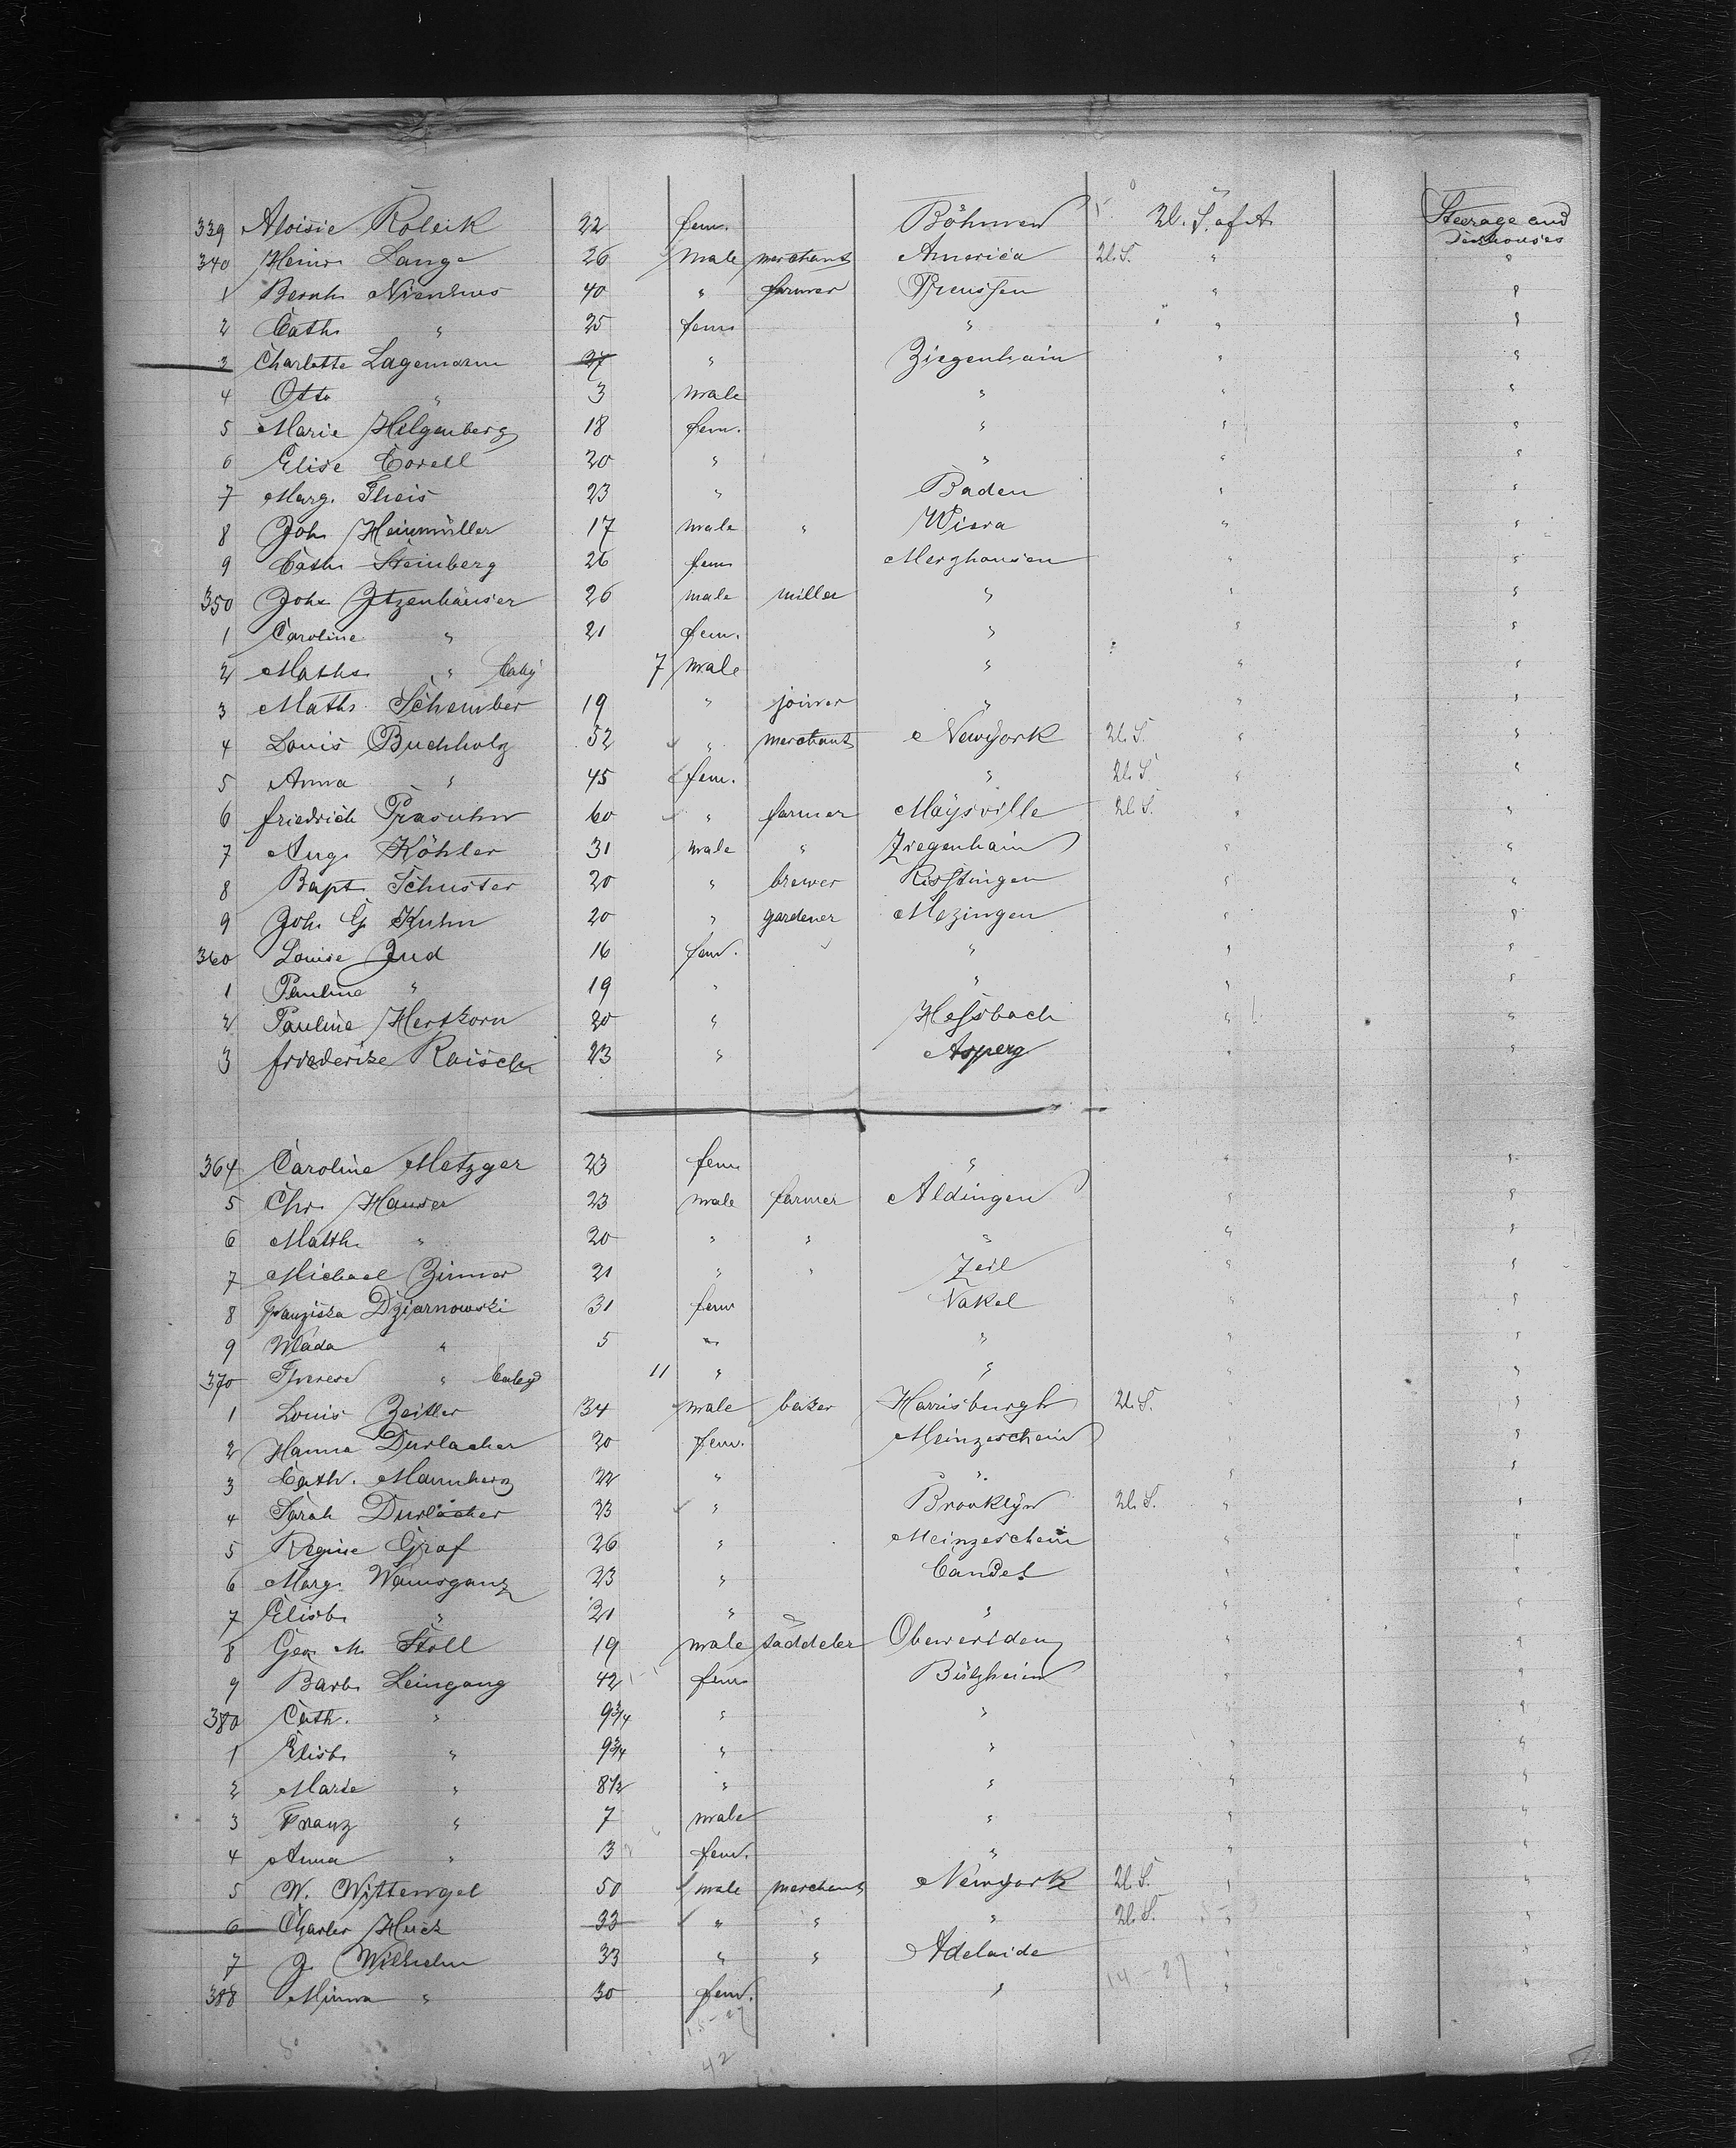 339 Aloisie Roleik 22 fem. Böhmen U. S. of A. Steerage and
Deckhouses
340 Heinr. Lange 26 male merchant America U.S. "
1 Bernh. Nienhus 40 " farmer Preussen " "
2 Cath. " 25 fem. " " "
3 Charlotte Lagemann 37 " Ziegenhain " "
4 Otto " 3 male " " "
5 Marie Hilgenberg 18 fem. " " "
6 Elise Corell 20 " " " "
7 Marg. Theis 23 " Baden " "
8 Joh. Heinmüller 17 male " Wiera " "
9 Cath. Steinberg 26 fem. Merghausen " "
350 Joh. Itzenhäuser 26 male miller " " "
1 Caroline " 21 fem. " " "
2 Maths. " baby 7 male " " "
3 Maths. Schember 19 " joiner " " "
4 Louis Buchholz 52 " merchant Newyork U.S. " "
5 Anna " 45 fem. " U.S. " "
6 friedrich Prasuhn 60 " farmer Maysville U.S. " "
7 Aug. Köhler 31 male " Ziegenhain " "
8 Bapt. Schuster 20 " brewer " "
9 Joh. G. Kuhn 20 " gardener Mezingen " "
360 Louise Jud 16 fem. " " "
1 Pauline " 19 " " " "
2 Pauline Herkorn 20 " Hessbach " "
3 friederike Raisch 23 " Asperg " "
364 Caroline Metzger 23 fem. " " "
5 Chr. Hauser 23 male farmer Aldingen " "
6 Matth. " 20 " " " " "
7 Michael Zinner 21 " " Zeil " "
8 Franziska Dziarnowski 31 fem. Nakel " "
9 Wlada " 5 " " " "
370 Therese " baby 11 " " " "
1 Louis Zeitler 34 male baker Harrisburgh U.S. " "
2 Hanna Durlacher 30 fem. Meinzeschein " "
3 Cath. Mannherz 22 " " " "
4 Sarah Durlacher 33 " Brooklyn U.S. " "
5 Regine Graf 26 " Meinzeschein " "
6 Marg. Wamsganz 23 " Candel " "
7 Elisb. " 21 " " " "
8 Geo. M. Stoll 19 male saddeler " "
9 Barb. Leingang 42 fem. Bülzheim " "
380 Cath. " 9 3/4 " " " "
1 Elisb. " 9 3/4 " " " "
2 Marie " 8 1/2 " " " "
3 Franz " 7 male " " "
4 Anna " 3 fem. " " "
5 W. Wittengel 50 male merchant Newyork U.S. " "
6 Charles Huck 33 " " " U.S. " "
7 J. Wilhelm 33 " " Adelaide " "
388 Minna " 30 fem. " 14-27 " "
15-27
42